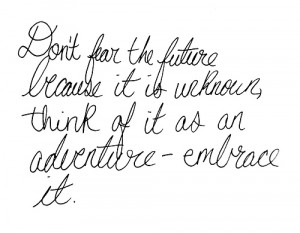 Don't fear the future
because it is unknown,
think of it as an
adventure - embrace
it.